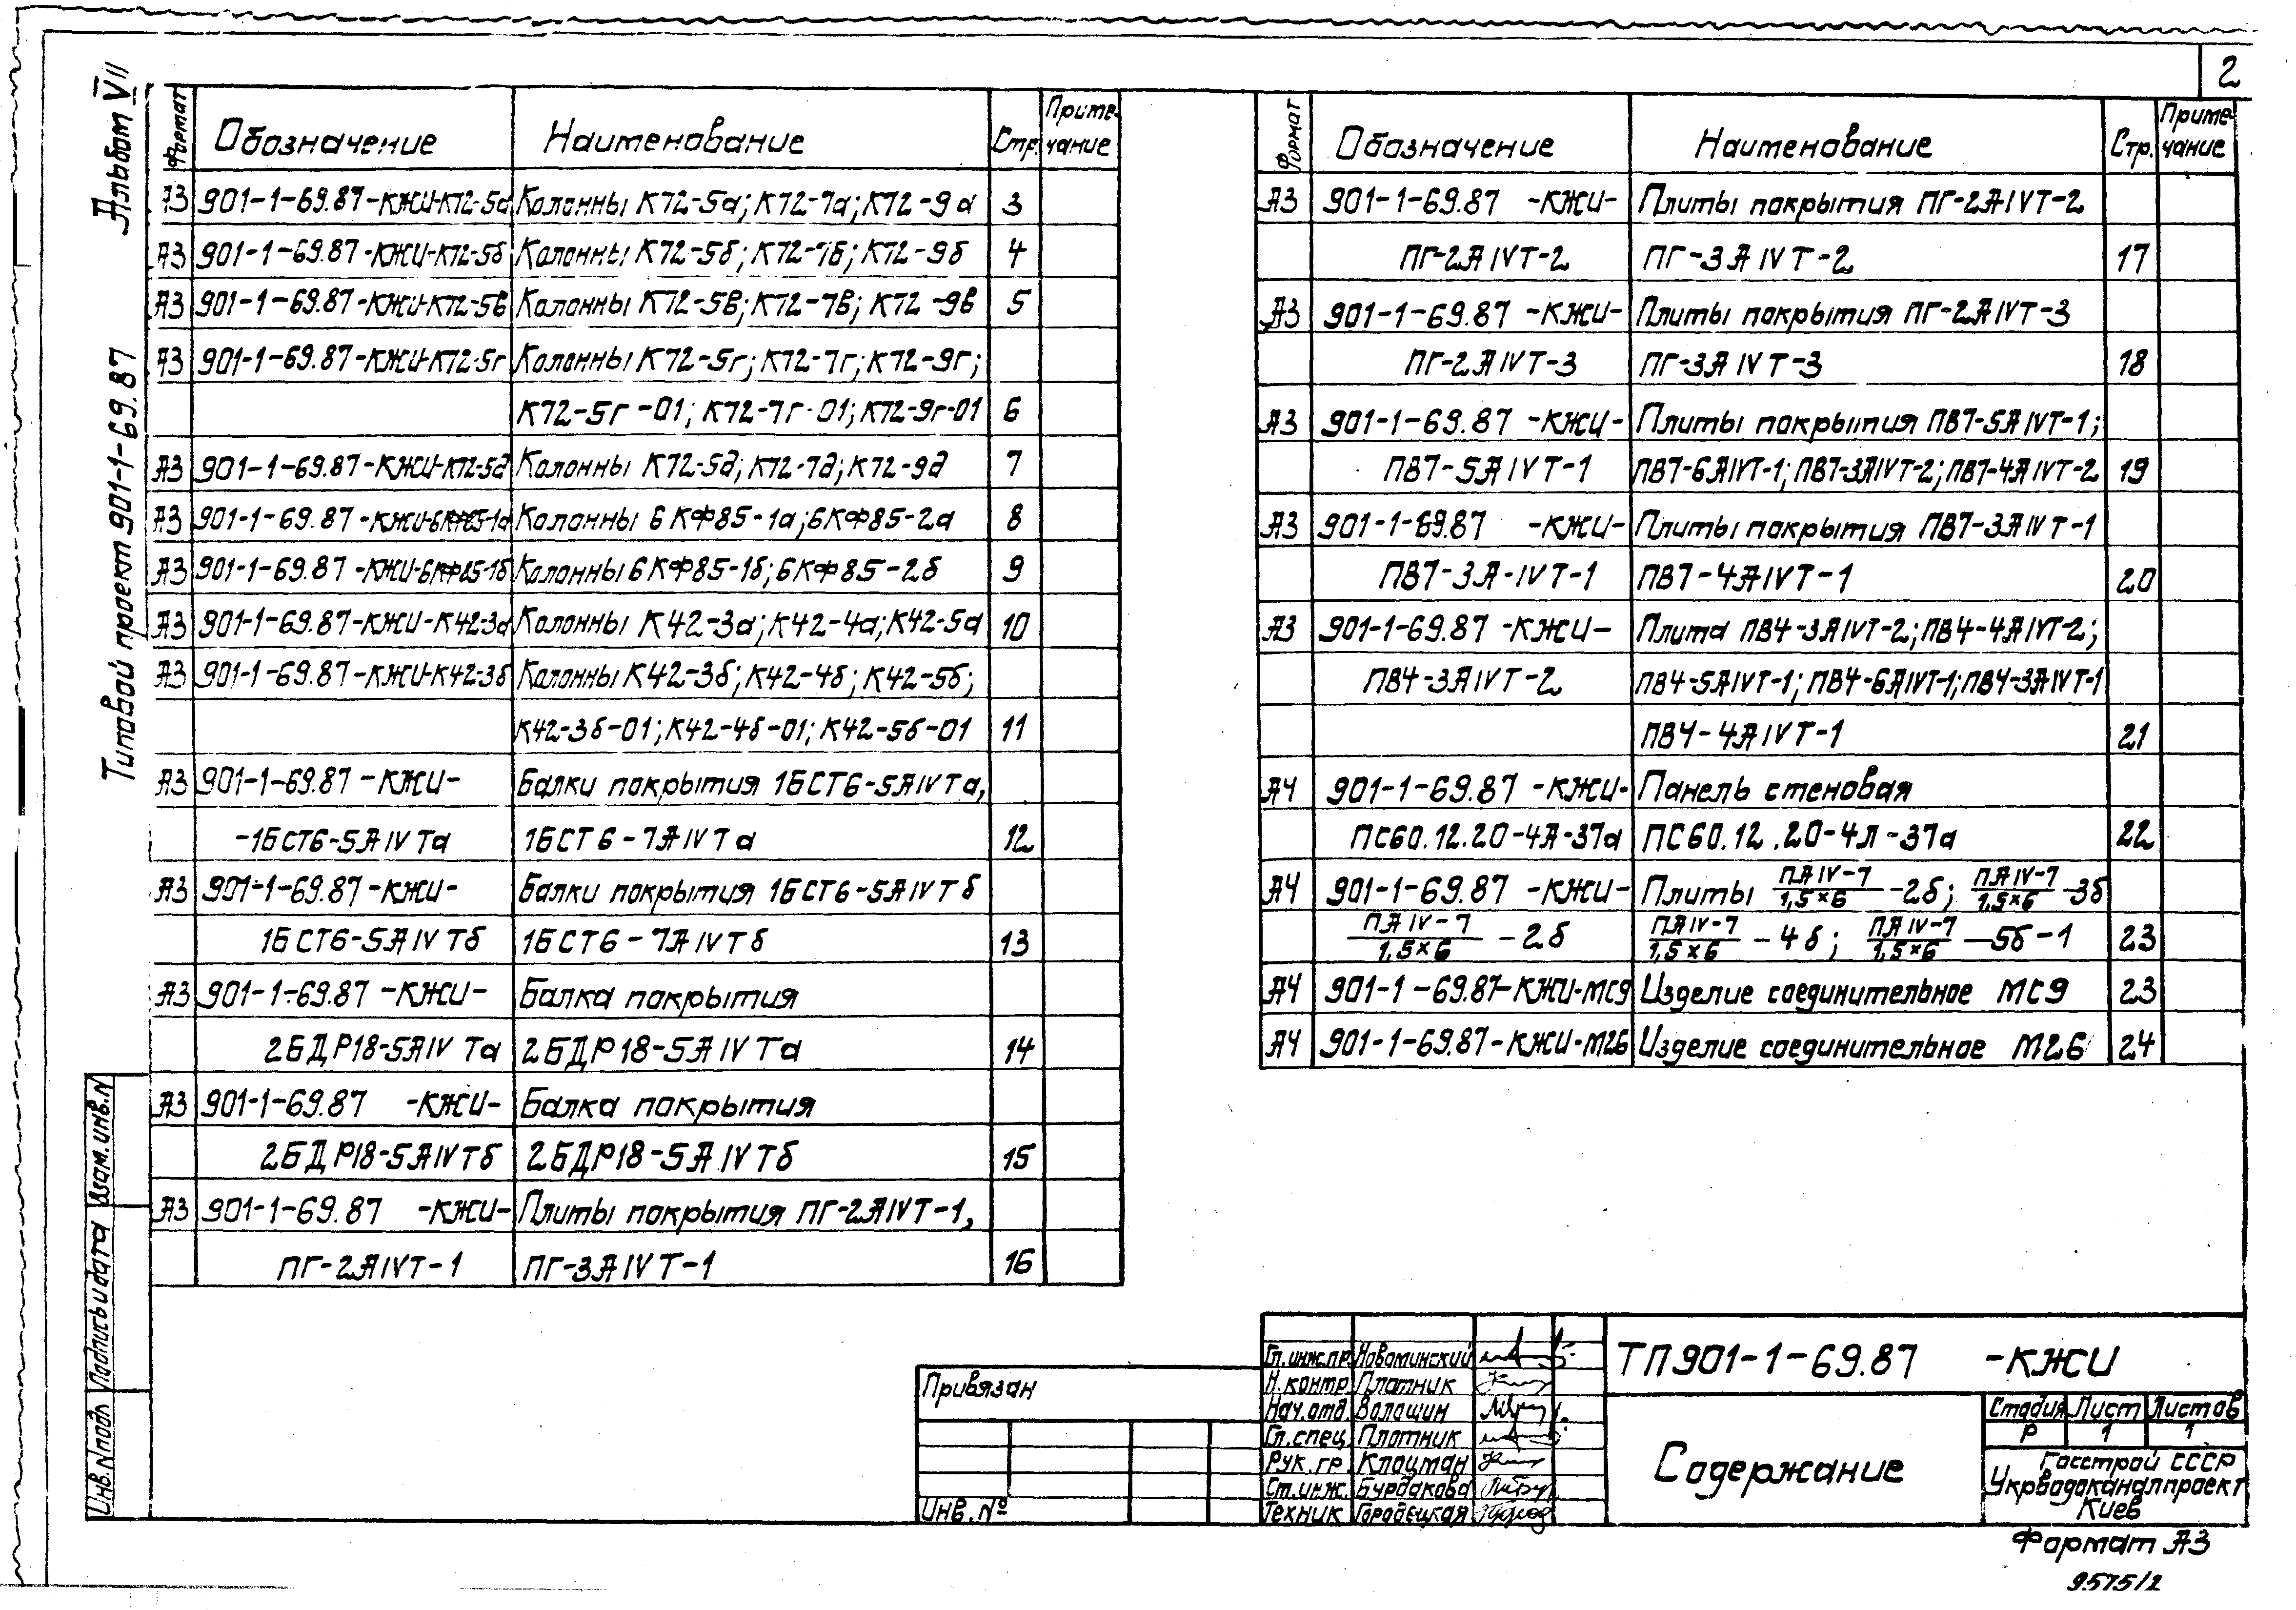 2
Альбом VII
Типовой проект 901-1-69.87
Формат Обозначение Наименование Стр. Примечание
А3 901-1-69.87-КЖИ-К72-5а Колонны К72-5а; К72-7а; К72-9а 3
А3 901-1-69.87-КЖИ-К72-5б Колонны К72-5б; К72-7б; К72-9б 4
А3 901-1-69.87-КЖИ-К72-5в Колонны К72-5в; К72-7в; К72-9в 5
А3 901-1-69.87-КЖИ-К72-5г Колонны К72-5г; К72-7г; К72-9г;
К72-5г-01; К72-7г-01; К72-9г-01 6
А3 901-1-69.87-КЖИ-К72-5д Колонны К72-5д; К72-7д; К72-9д 7
А3 901-1-69.87-КЖИ-6КФ85-1а Колонны 6КФ85-1а; 6КФ85-2а 8
А3 901-1-69.87-КЖИ-6КФ85-1б Колонны 6КФ85-1б; 6КФ85-2б 9
А3 901-1-69.87-КЖИ-К42-3а Колонны К42-3а; К42-4а; К42-5а 10
А3 901-1-69.87-КЖИ-К42-3б Колонны К42-3б; К42-4б; К42-5б;
К42-3б-01; К42-4б-01; К42-5б-01 11
А3 901-1-69.87-КЖИ- Балки покрытия 1БСТ6-5АIVТа,
-1БСТ6-5АIVТа 1БСТ6-7АIVТа 12
А3 901-1-69.87-КЖИ- Балки покрытия 1БСТ6-5АIVТб
1БСТ6-5АIVТб 1БСТ6-7АIVТб 13
А3 901-1-69.87-КЖИ- Балка покрытия
2БДР18-5АIVТа 2БДР18-5АIVТа 14
А3 901-1-69.87 -КЖИ- Балка покрытия
2БДР18-5АIVТб 2БДР18-5АIVТб 15
А3 901-1-69.87 -КЖИ- Плиты покрытия ПГ-2АIVТ-1,
ПГ-2АIVТ-1 ПГ-3АIVТ-1 16
Формат Обозначение Наименование Стр. Примечание
А3 901-1-69.87 -КЖИ- Плиты покрытия ПГ-2АIVТ-2
ПГ-2АIVТ-2 ПГ-3АIVТ-2 17
А3 901-1-69.87 -КЖИ- Плиты покрытия ПГ-2АIVТ-3
ПГ-2АIVТ-3 ПГ-3АIVТ-3 18
А3 901-1-69.87 -КЖИ- Плиты покрытия ПВ7-5АIVТ-1;
ПВ7-5АIVТ-1 ПВ7-6АIVТ-1; ПВ7-3АIVТ-2; ПВ7-4АIVТ-2 19
А3 901-1-69.87 -КЖИ- Плиты покрытия ПВ7-3АIVТ-1
ПВ7-3А-IVТ-1 ПВ7-4АIVТ-1 20
А3 901-1-69.87 -КЖИ- Плита ПВ4-3АIVТ-2; ПВ4-4АIVТ-2;
ПВ4-3АIVТ-2 ПВ4-5АIVТ-1; ПВ4-6АIVТ-1; ПВ4-3АIVТ-1
ПВ4-4АIVТ-1 21
А4 901-1-69.87 -КЖИ- Панель стеновая
ПС60.12.20-4Л-37а ПС60.12.20-4л-37а 22
А4 901-1-69.87 -КЖИ- Плиты ПАIV-7/1,5×6-2б; ПАIV-7/1,5×6-3б
ПАIV-7/1,5×6-2б ПАIV-7/1,5×6-4б; ПАIV-7/1,5×6-5б-1 23
А4 901-1-69.87-КЖИ-МС9 Изделие соединительное МС9 23
А4 901-1-69.87-КЖИ-М26 Изделие соединительное М26 24
Взам.инв.N
Подпись и дата
Инв.N подл
Привязан
Инв. №
Гл.инж.пр. Новоминский
Н.контр Плотник
Нач.отд. Волошин
Гл.спец. Плотник
Рук.гр. Клоцман
Ст.инж. Бурдакова
Техник Городецкая
ТП901-1-69.87 -КЖИ
Содержание
Стадия Лист Листов
Р 1 1
Госстрой СССР
Укрводоканалпроект
Киев
Формат А3
9575/2